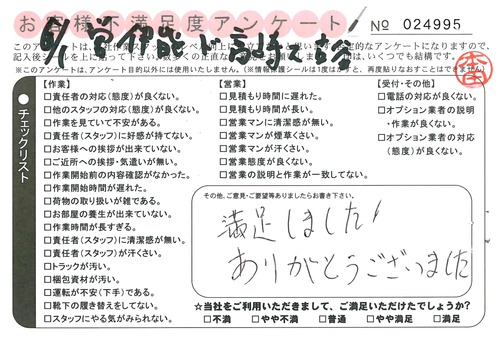 お客様不満足度アンケート
No 024995
【作業】
□責任者の対応(態度)が良くない。
□他のスタッフの対応(態度)が良くない。
□作業を見ていて不安がある。
□責任者(スタッフ)に好感が持てない。
□お客様への挨拶が出来ていない。
□ご近所への挨拶・気遣いが無い。
□作業開始前の内容確認がなかった。
□作業開始時間が遅れた。
□荷物の取り扱いが雑である。
□お部屋の養生が出来ていない。
□作業時間が長すぎる。
□責任者(スタッフ)に清潔感が無い。
□責任者(スタッフ)が汗くさい。
□トラックが汚い。
□梱包資材が汚い。
□運転が不安(下手)である。
□靴下の履き替えをしてない。
□スタッフにやる気がみられない。
【営業】
□見積もり時間に遅れた。
□見積もり時間が長い。
□営業マンに清潔感が無い。
□営業マンが煙草くさい。
□営業マンが汗くさい。
□営業態度が良くない。
□営業の説明と作業が一致してない。
【受付・その他】
□電話の対応が良くない。
□オプション業者の説明
・作業が良くない。
□オプション業者の対応
(態度)が良くない。
チェックリスト
その他、ご意見・ご要望等ありましたらお書き下さい。
満足しました!
ありがとうございました
☆当社をご利用いただきまして、ご満足いただけたでしょうか?
□不満 □やや不満 □普通 □やや満足 □満足